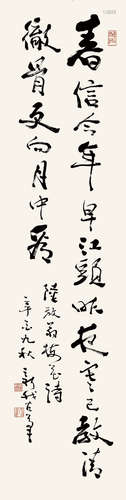 春信今年早江頭昨夜寒已教清
徹骨更向月中看
陸放翁梅花詩
九秋